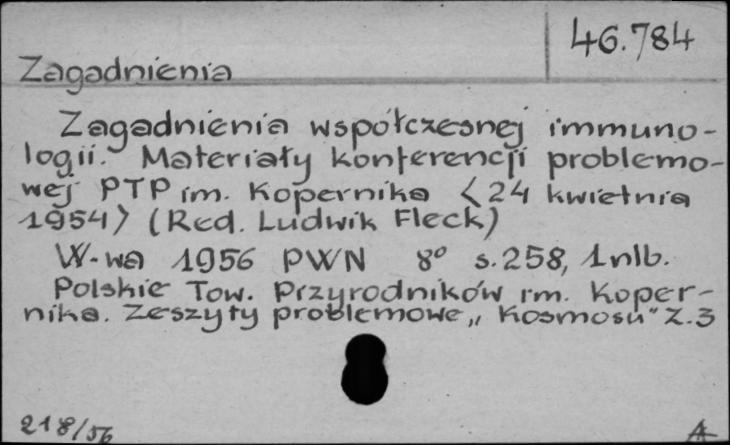 46.784
Zagadnienia
Zagadnienia współczesnej immuno-
logii. Materiały konferencji problemo-
wej PTP im. Kopernika <24 kwietnia
1954> (Red. Ludwik Fleck)
W-wa 1956 PWN 8° s.258, 1nlb.
Polskie Tow. Przyrodników im. Koper-
nika. Zeszyty problemowe „Kosmosu" Z.3
218/56
A